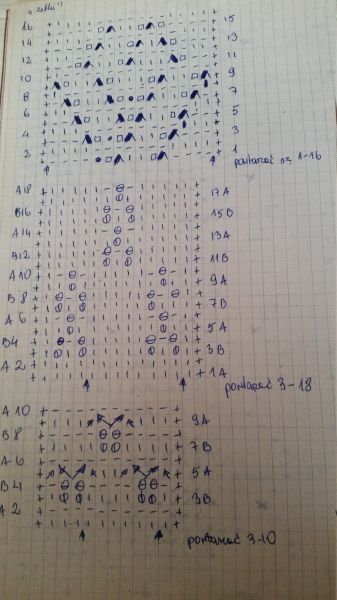 "żółty"
16 15
14 13
12 11
10 9
8 7
6 5
4 3
2 1
powtarzać rz. 1-16
A18 17A
B16 15B
A14 13A
B12 11B
A10 9A
B8 7B
A6 5A
B4 3B
A2 1A
powtarzać 3-18
A10 9A
B8 7B
A6 5A
B4 3B
A2
powtarzać 3-10